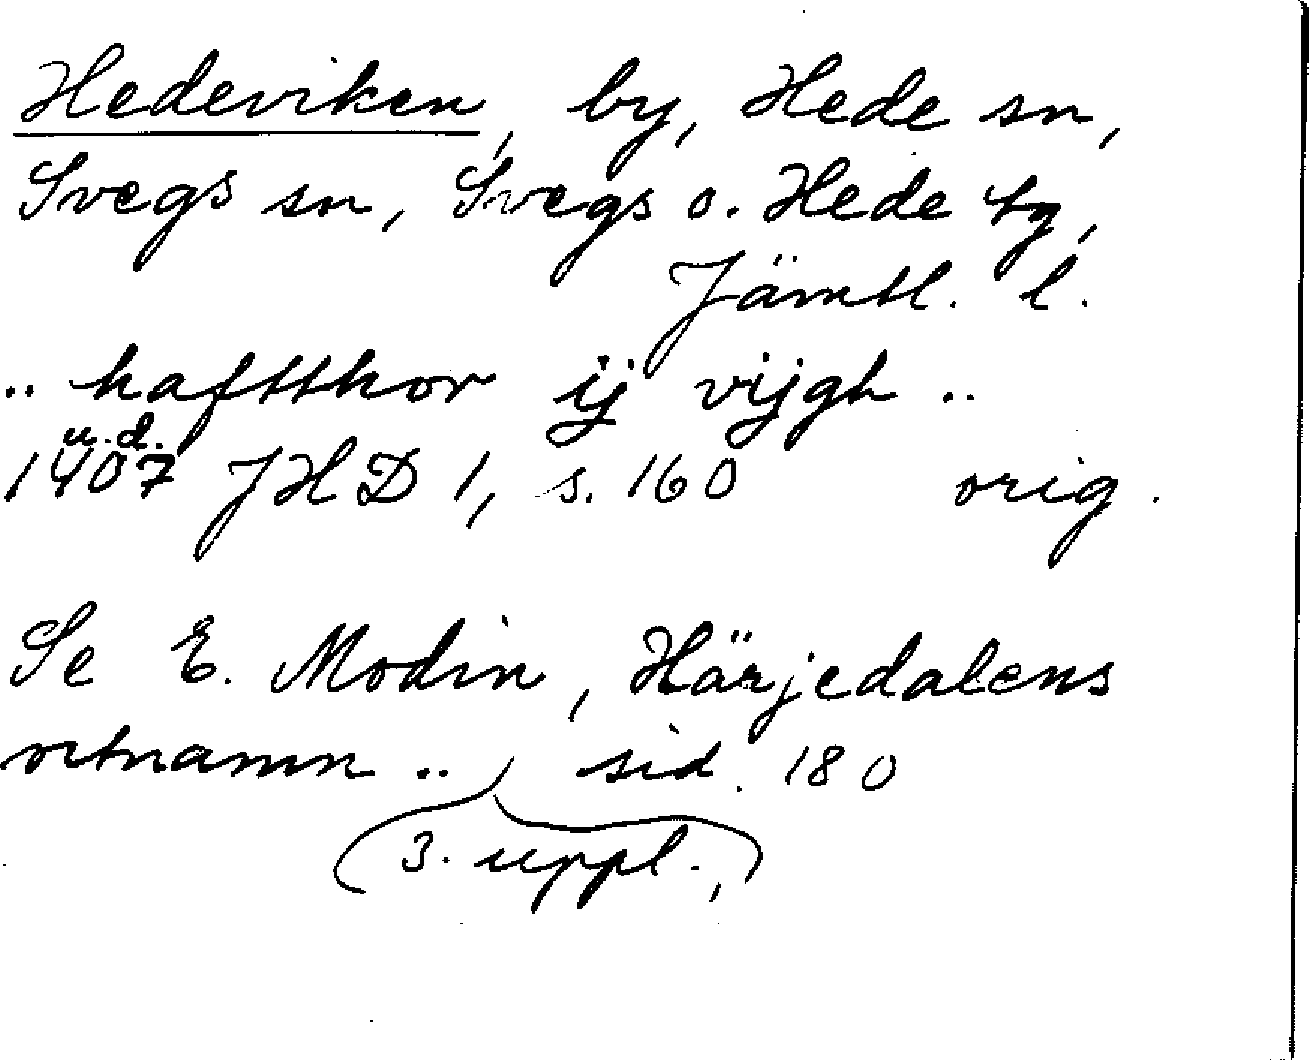 Hedeviken, by, Hede sn,
Svegs sn, Svegs o. Hede tg,
Jämtl. l.
.. haftthor ij vijgh ..
u.d.
1407 JHD 1, s. 160 orig.
Se E. Modin, Härjedalens
ortnamn .. sid. 180
3. uppl.,